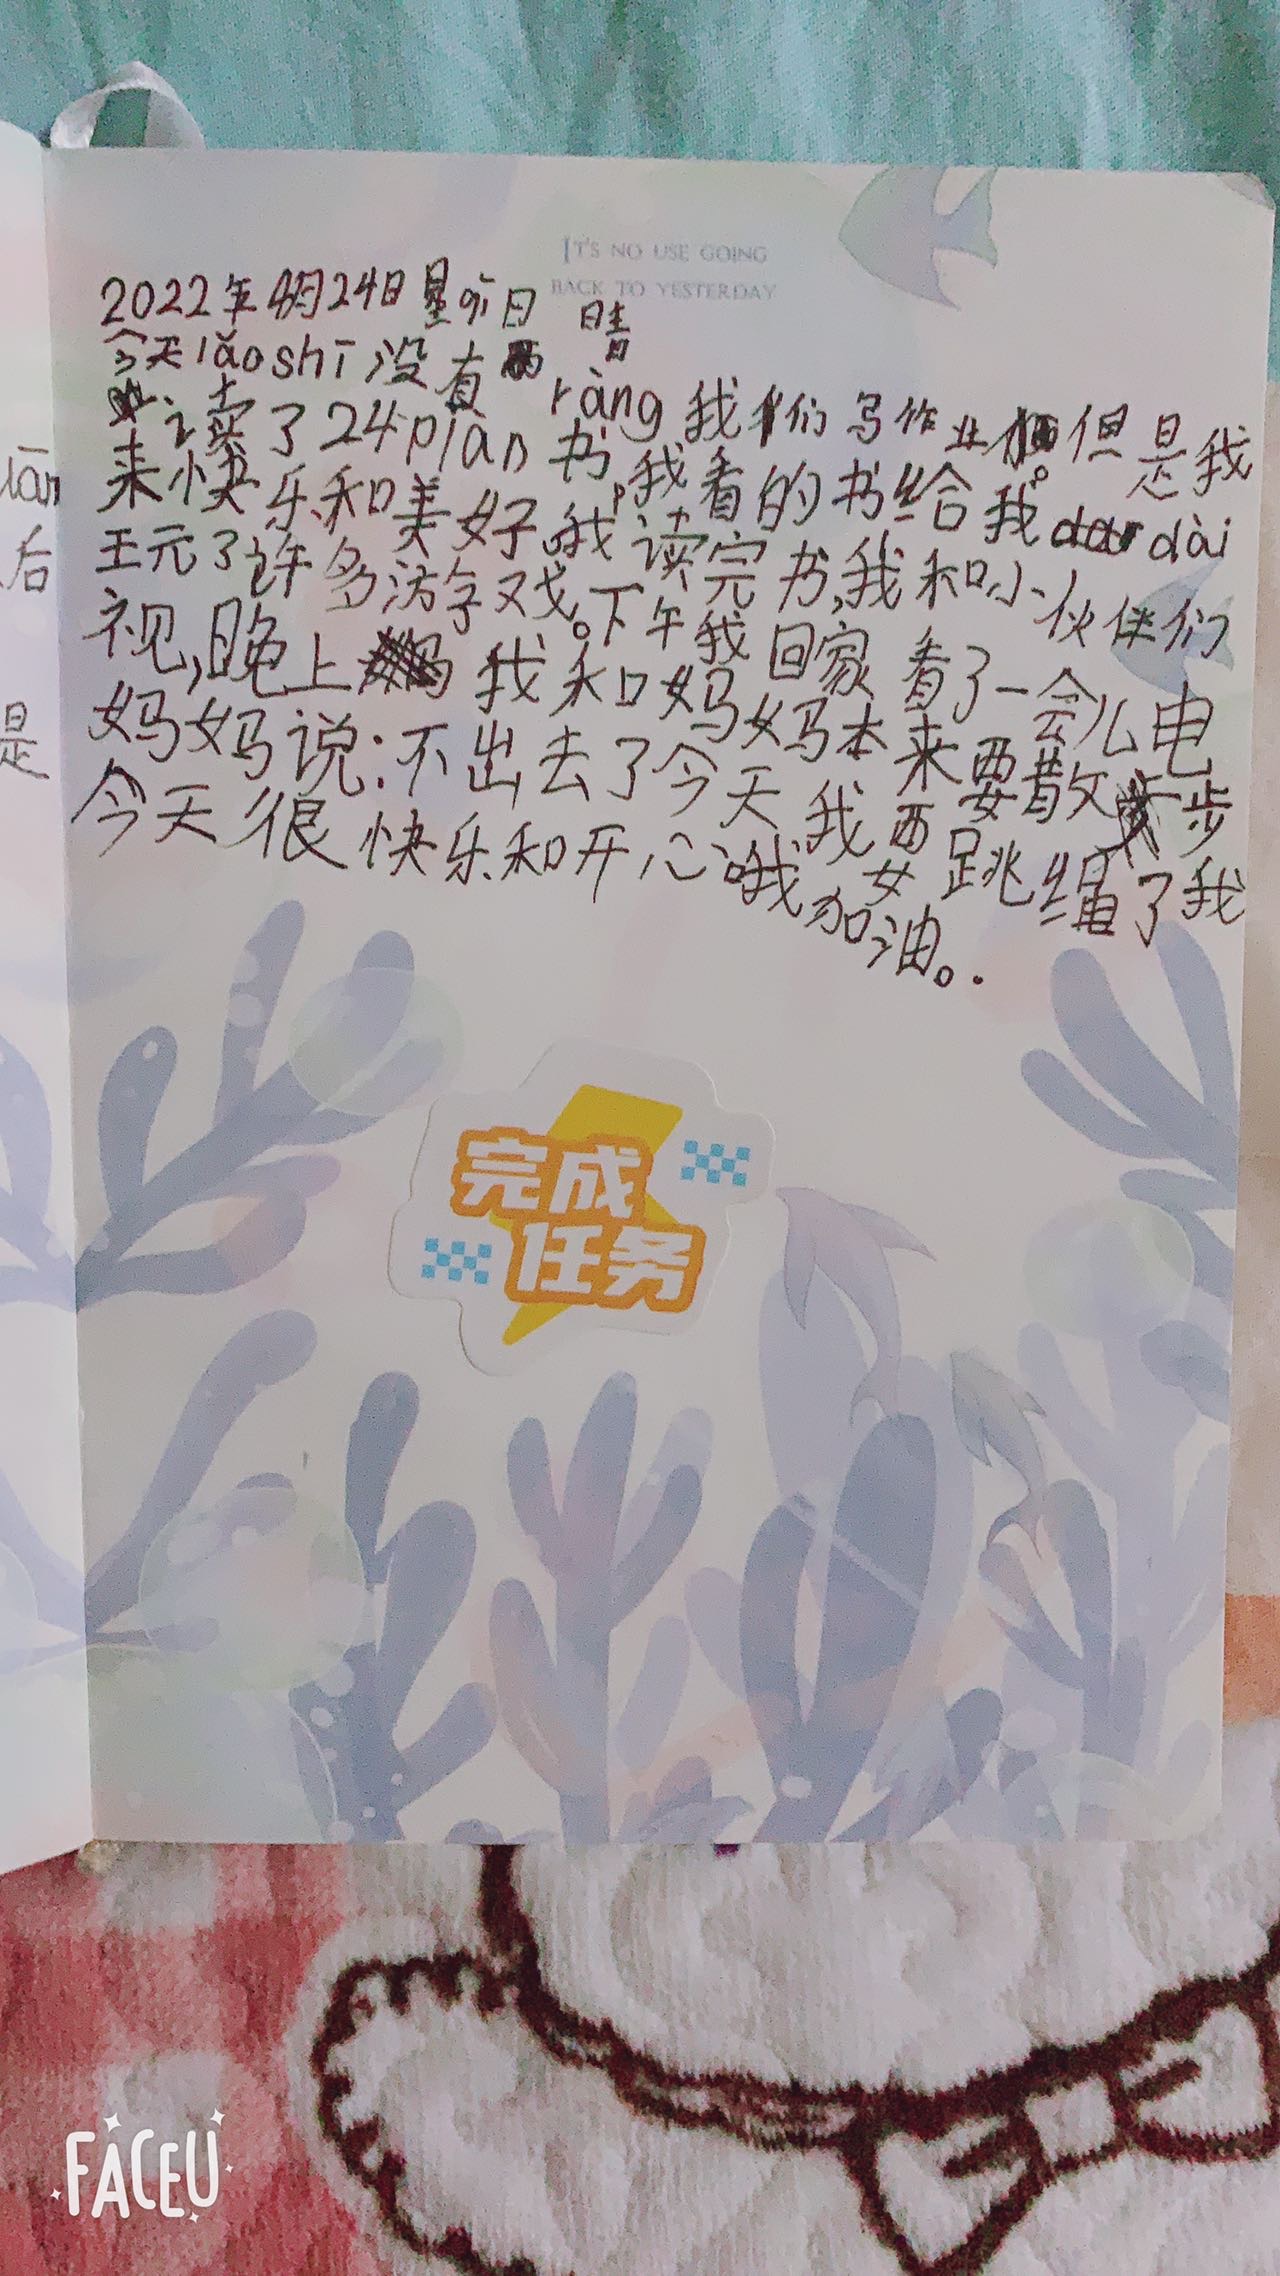 IT'S NO USE GOING
BACK TO YESTERDAY
2022年4月24日星qī日 晴
今天lǎoshī没有ràng我们写作业。但是我
读了24piān书,我看的书给我dài
来快乐和美好。我读完书,我和小伙伴们
王元了许多游字戏。下午我回家看了一会儿电
视,晚上我和妈妈本来要散步
妈妈说:不出去了今天我要跳绳了我
今天很快乐和开心哦我加油。.
iān
后
是
完成
任务
FACEU